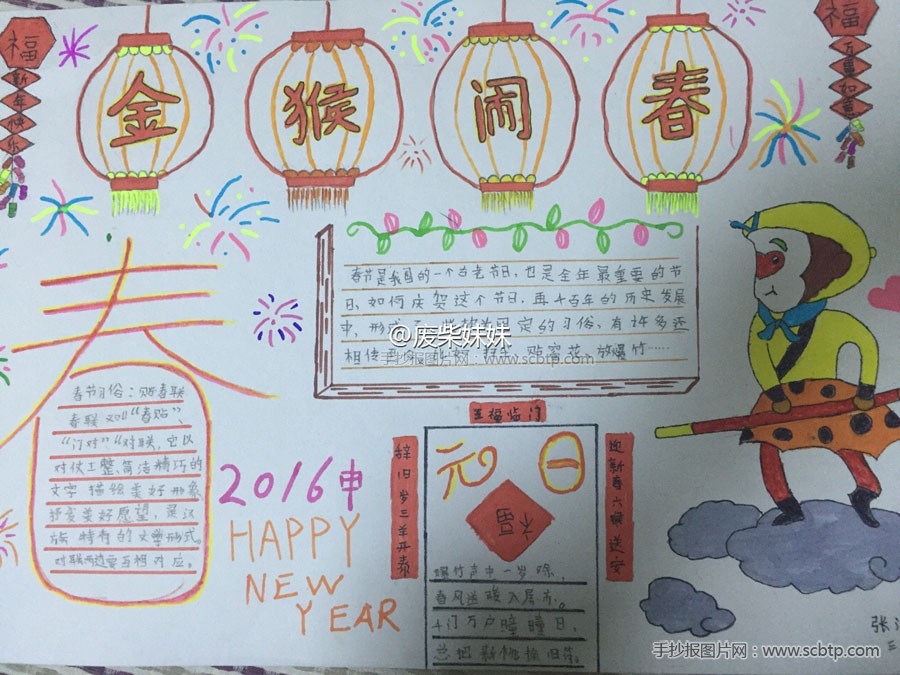 福
新年快乐
金 猴 闹 春
福
万事如意
春节是我国的一个古老节日，也是全年最重要的节
日，如何庆贺这个节日，再千百年的历史发展
中，形成了一些较为固定的习俗，有许多还
相传至今
贴窗花 放爆竹……
@废柴妹妹
手抄报图片网：www.scbtp.com
春
春节习俗：贴春联
春联又叫“春贴”、
“门对”“对联，它以
对仗工整、简洁精巧的
文字描绘美好形象
抒发美好愿望，是汉
族特有的文学形式。
对联两边要互相对应。
2016申
HAPPY
NEW
YEAR
五福临门
辞旧岁三羊开泰
迎新春六猴送安
元日
福
爆竹声中一岁除，
春风送暖入屠苏。
千门万户瞳瞳日，
总把新桃换旧符。
张
三
手抄报图片网：www.scbtp.com